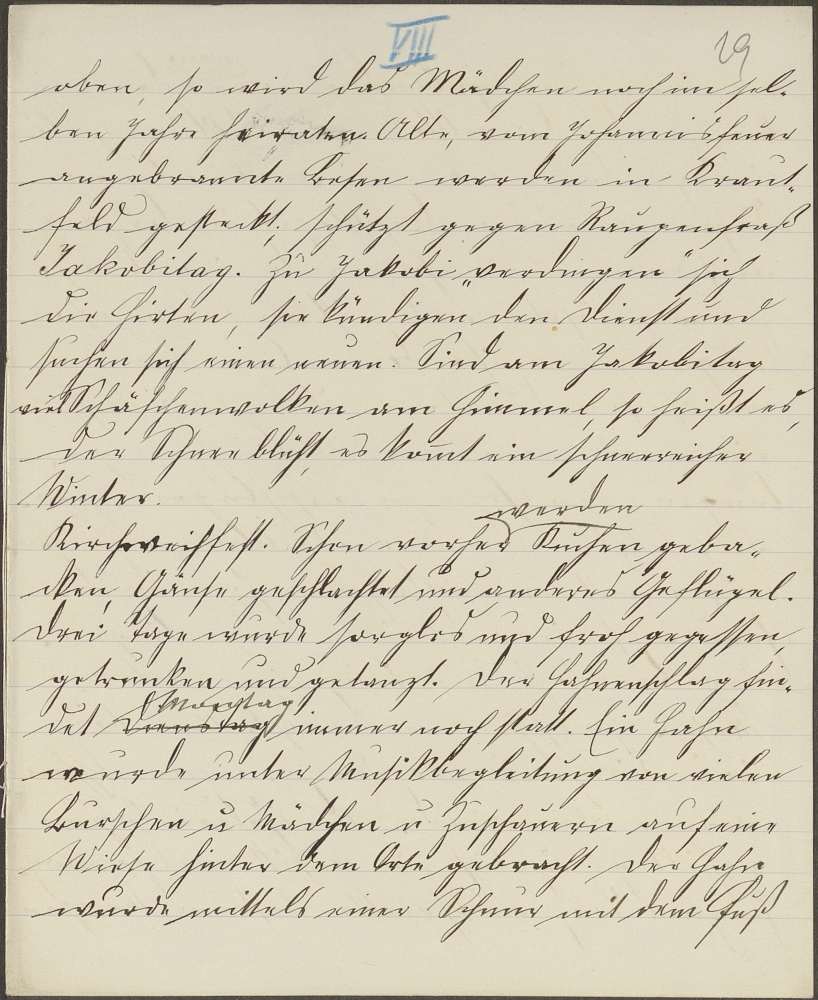 VIII 29
oben, so wird das Mädchen noch im sel-
ben Jahre heiraten. Alte, vom Johannisfeuer
angebrannte Besen werden in Kraut-
feld gesteckt; schützt gegen Raupenfraß
Jakobitag. Zu Jakobi „verdingen" sich
die Hirten, sie kündigen den Dienst und
suchen sich einen neuen. Sind am Jakobitag
viel Schäfchenwolken am Himmel, so heißt es,
der Schnee blüht, es kommt ein schneereicher
Winter.
werden
Kirchweihfest. Schon vorher Kuchen geba-
cken, Gänse geschlachtet und anderes Geflügel.
Drei Tage wurde sorglos und froh gegessen,
getrunken und getanzt. Der Hahnenschlag fin-
Montag
det Dienstag immer noch statt. Ein Hahn
wurde unter Musikbegleitung von vielen
Burschen u Mädchen u Zuschauern auf eine
Wiese hinter dem Orte gebracht. Der Hahn
wurde mittels einer Schnur mit dem Fuß